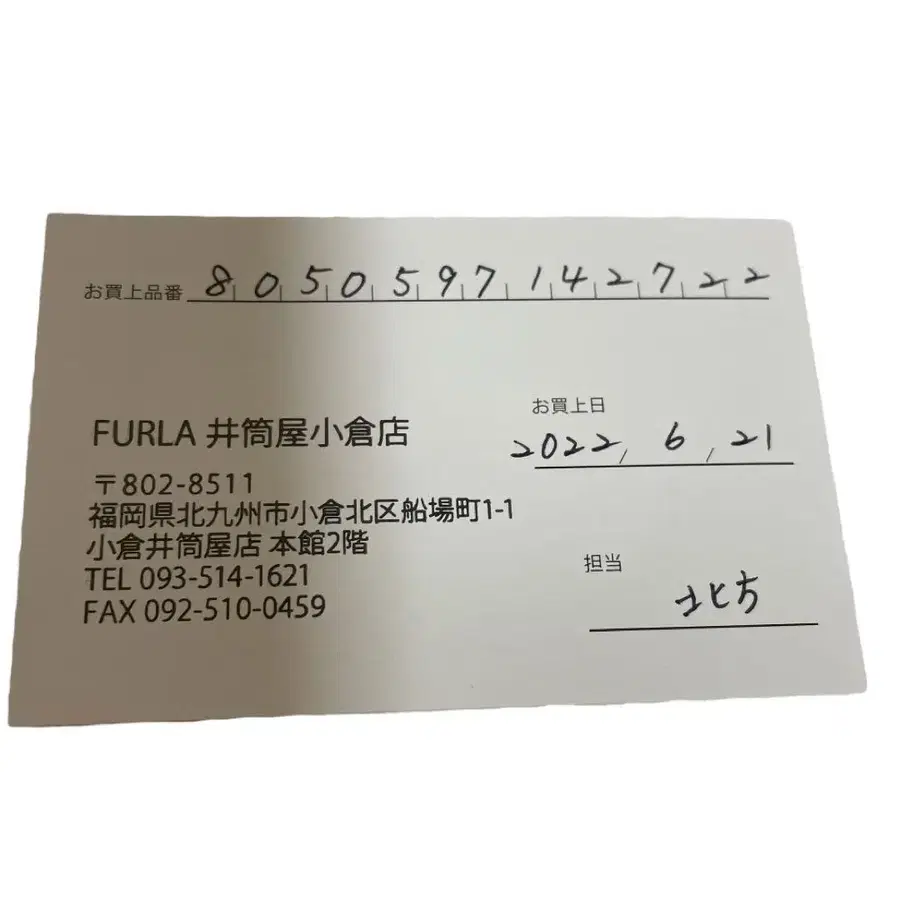 お買上品番 8050597142722
お買上日
2022, 6, 21
FURLA 井筒屋小倉店
〒802-8511
福岡県北九州市小倉北区船場町1-1
小倉井筒屋店 本館2階
TEL 093-514-1621
FAX 092-510-0459
担当
北方